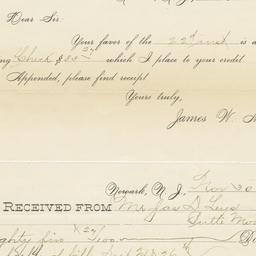 Dear Sir.
Your favor of the 22nd inst is a
ing Check $85 27 which I place to your credit
Appended, please find receipt
Yours truly,
James W.
Newark, N. J. Nov 20
RECEIVED FROM Mr Jas
Butte Mon
ighty five 27/100 Do
bill